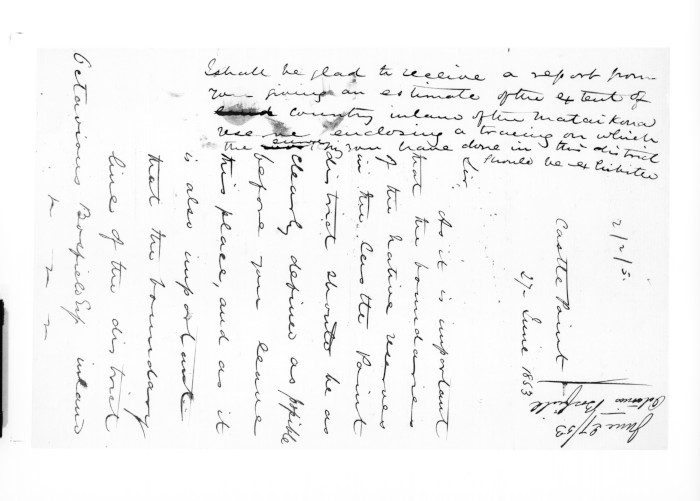 2/2/5.
Castle Point
27 June 1853
Sir,
As it is important
that the boundaries
of the native reserves
in the Castle Point
district should be as
clearly defined as possible
before you leave
this place, and as it
is also important
that the boundary
line of the district
inland
Octavious Bosfield Esq
I shall be glad to receive a report from
you giving an estimate of the extent of
country inland of the Matai Kona
reserve enclosing a tracing on which
the you have done in this district
should be exhibited
June 27/53